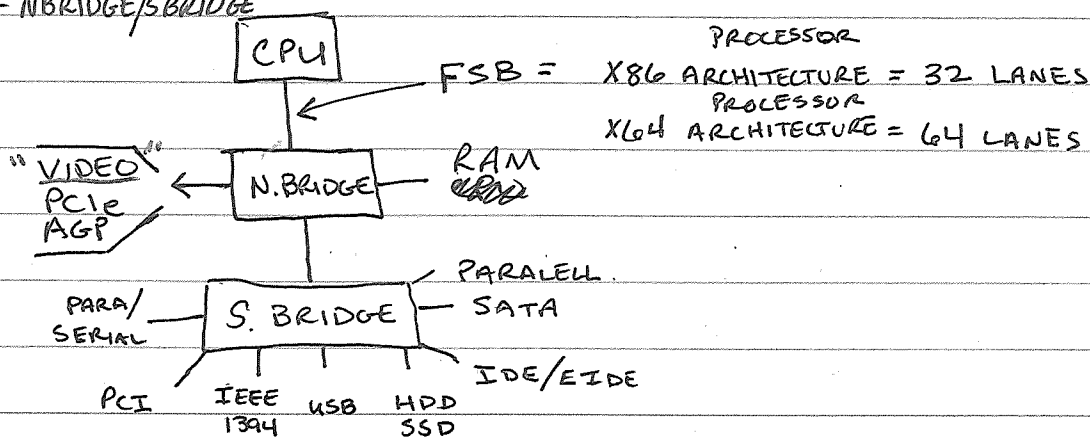 - NBRIDGE/SBRIDGE
CPU
FSB =
PROCESSOR
X86 ARCHITECTURE = 32 LANES
PROCESSOR
X64 ARCHITECTURE = 64 LANES
"VIDEO"
PCIe
AGP
N.BRIDGE
RAM
PARALELL.
PARA/
SERIAL
S. BRIDGE
SATA
IDE/EIDE
PCI
IEEE
1394
USB
HDD
SSD